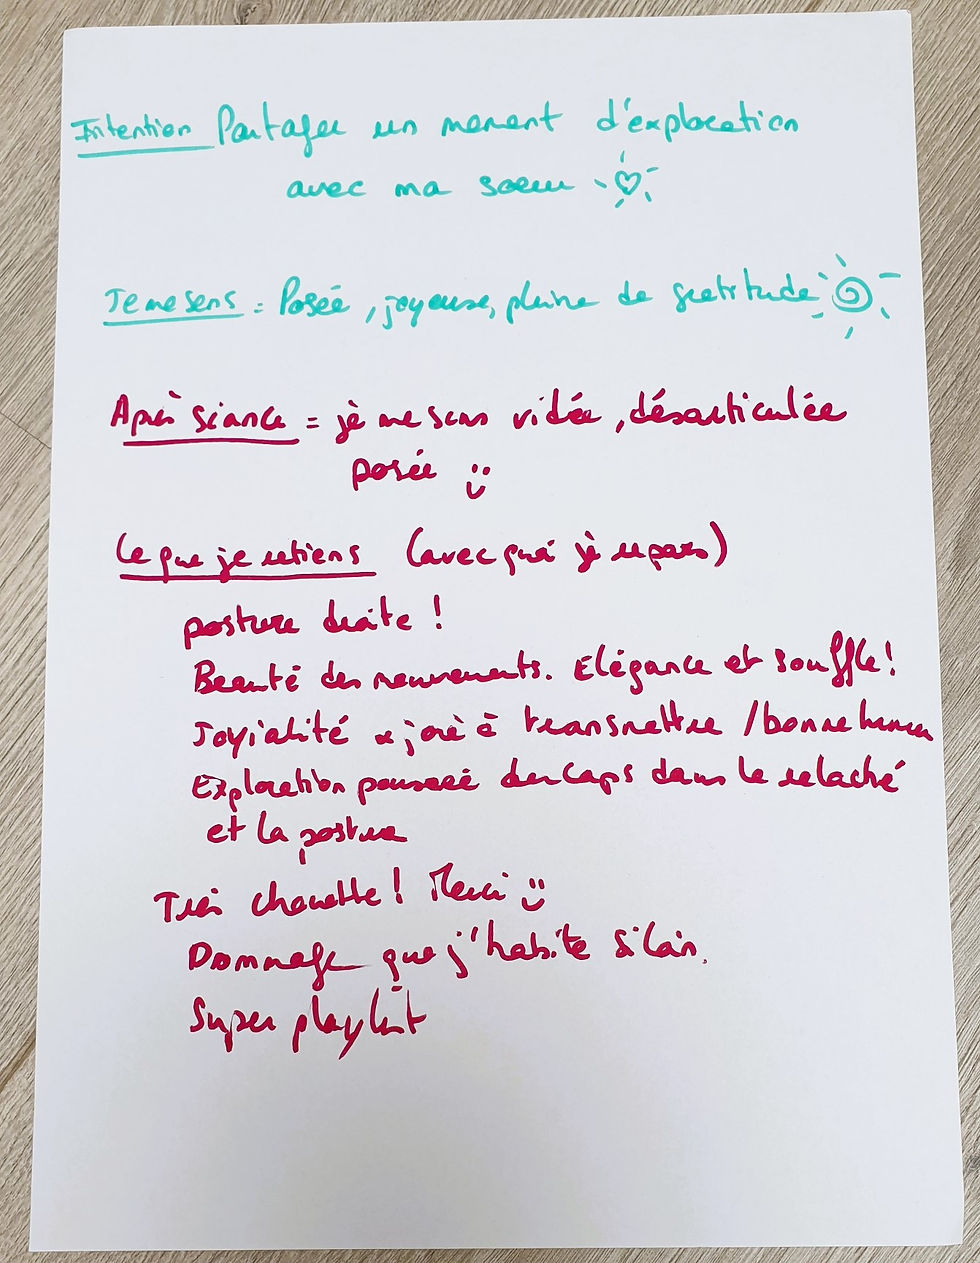 Intention Partager un moment d'exploration
avec ma soeur
Je me sens = Posée, joyeuse, pleine de gratitude
Après séance = je me sens vidée, désarticulée
posée
Ce que je retiens (avec quoi je repars)
posture droite !
Beauté des mouvements. Elégance et souffle !
Jovialité & joie à transmettre / bonne humeur
Exploration poussée du corps dans le relaché
et la posture
Très chouette ! Merci
Dommage que j'habite si loin.
Super playlist